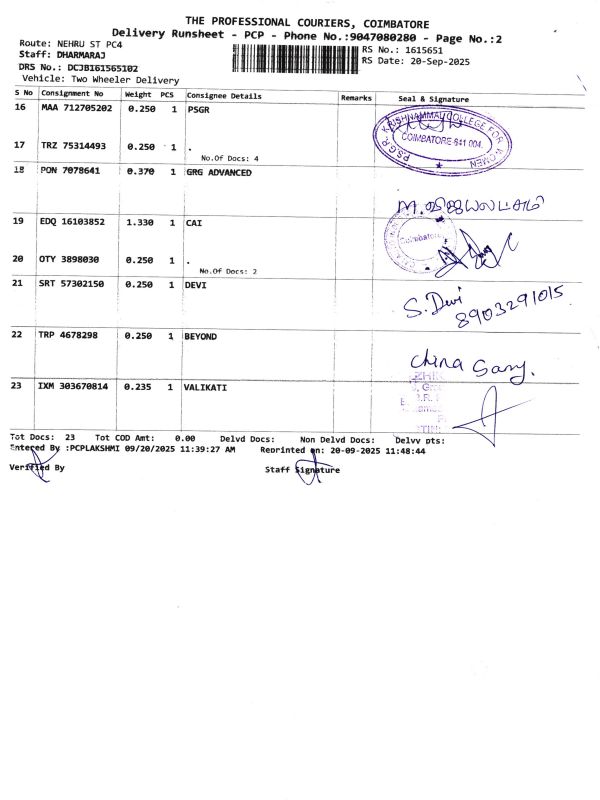 THE PROFESSIONAL COURIERS, COIMBATORE
Delivery Runsheet - PCP - Phone No.:9047080280 - Page No.:2
Route: NEHRU ST PC4
Staff: DHARMARAJ
DRS No.: DCJB161565102
Vehicle: Two Wheeler Delivery
RS No.: 1615651
RS Date: 20-Sep-2025
S No Consignment No Weight PCS Consignee Details Remarks Seal & Signature
16 MAA 712705202 0.250 1 PSGR
P.S.G.R. KRISHNAMMAL COLLEGE FOR WOMEN
COIMBATORE-641 004.
17 TRZ 75314493 0.250 1 .
No.Of Docs: 4
18 PON 7078641 0.370 1 GRG ADVANCED
M. விஜயலட்சுமி
19 EDQ 16103852 1.330 1 CAI
Coimbatore
20 OTY 3898030 0.250 1 .
No.Of Docs: 2
21 SRT 57302150 0.250 1 DEVI
S. Devi
8903291015
22 TRP 4678298 0.250 1 BEYOND
China Samy.
23 IXM 303670814 0.235 1 VALIKATI
Tot Docs: 23 Tot COD Amt: 0.00 Delvd Docs: Non Delvd Docs: Delvv pts:
Entered By :PCPLAKSHMI 09/20/2025 11:39:27 AM Reprinted on: 20-09-2025 11:48:44
Verified By Staff Signature